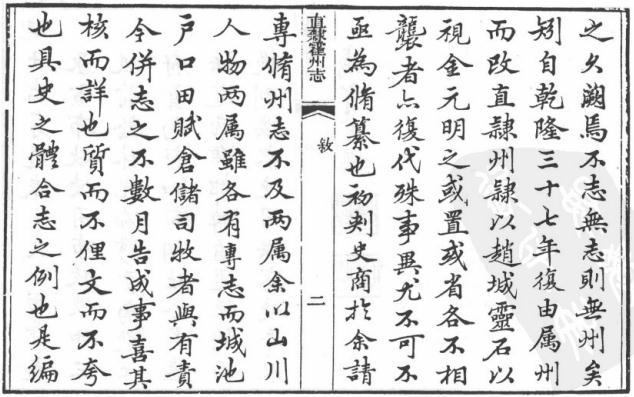 之久闕焉不志無志則無州矣
矧自乾隆三十七年復由属州
而改直隷州隷以趙城靈石以
視金元明之或置或省各不相
襲者亦復代殊事異尤不可不
亟為脩纂也初刺史商於余請
直隷霍州志
敘
二
專脩州志不及两属余以山川
人物两属雖各有專志而城池
户口田賦倉儲司牧者與有責
今併志之不數月告成事喜其
核而詳也質而不俚文而不夸
也具史之體合志之例也是編